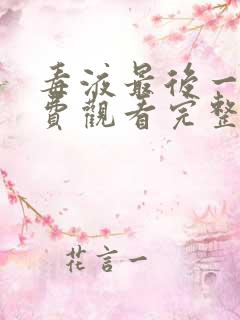 毒液最後一
費觀看完整
花言一